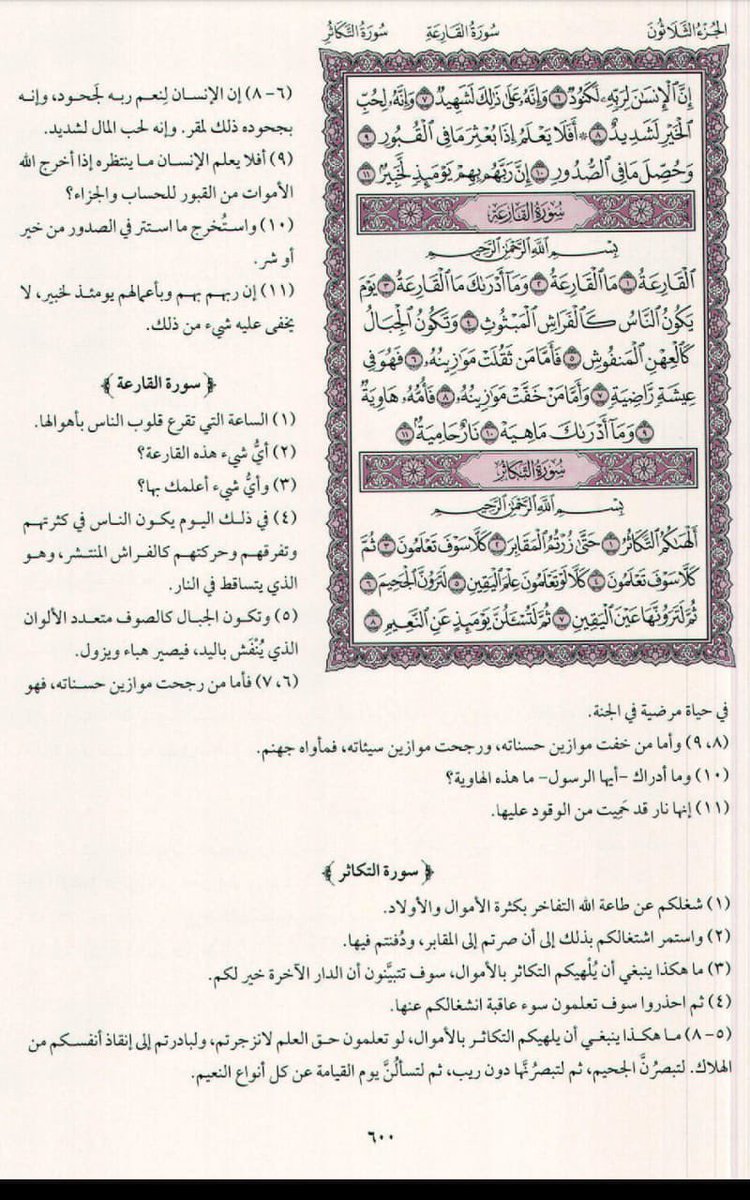 الجُزءُ الثَّلَاثُونَ سُورَةُ القَارِعَةِ سُورَةُ التَّكَاثُرِ
إِنَّ ٱلْإِنسَٰنَ لِرَبِّهِۦ لَكَنُودٌ ٦ وَإِنَّهُۥ عَلَىٰ ذَٰلِكَ لَشَهِيدٌ ٧ وَإِنَّهُۥ لِحُبِّ
ٱلْخَيْرِ لَشَدِيدٌ ٨ ۞ أَفَلَا يَعْلَمُ إِذَا بُعْثِرَ مَا فِي ٱلْقُبُورِ ٩
وَحُصِّلَ مَا فِي ٱلصُّدُورِ ١٠ إِنَّ رَبَّهُم بِهِمْ يَوْمَئِذٍ لَّخَبِيرٌۢ ١١
سُورَةُ القَارِعَةِ
بِسْمِ ٱللَّهِ ٱلرَّحْمَٰنِ ٱلرَّحِيمِ
ٱلْقَارِعَةُ ١ مَا ٱلْقَارِعَةُ ٢ وَمَآ أَدْرَىٰكَ مَا ٱلْقَارِعَةُ ٣ يَوْمَ
يَكُونُ ٱلنَّاسُ كَٱلْفَرَاشِ ٱلْمَبْثُوثِ ٤ وَتَكُونُ ٱلْجِبَالُ
كَٱلْعِهْنِ ٱلْمَنفُوشِ ٥ فَأَمَّا مَن ثَقُلَتْ مَوَٰزِينُهُۥ ٦ فَهُوَ فِي
عِيشَةٍ رَّاضِيَةٍ ٧ وَأَمَّا مَنْ خَفَّتْ مَوَٰزِينُهُۥ ٨ فَأُمُّهُۥ هَاوِيَةٌ
٩ وَمَآ أَدْرَىٰكَ مَا هِيَهْ ١٠ نَارٌ حَامِيَةٌۢ ١١
سُورَةُ التَّكَاثُرِ
بِسْمِ ٱللَّهِ ٱلرَّحْمَٰنِ ٱلرَّحِيمِ
أَلْهَىٰكُمُ ٱلتَّكَاثُرُ ١ حَتَّىٰ زُرْتُمُ ٱلْمَقَابِرَ ٢ كَلَّا سَوْفَ تَعْلَمُونَ ٣ ثُمَّ
كَلَّا سَوْفَ تَعْلَمُونَ ٤ كَلَّا لَوْ تَعْلَمُونَ عِلْمَ ٱلْيَقِينِ ٥ لَتَرَوُنَّ ٱلْجَحِيمَ ٦
ثُمَّ لَتَرَوُنَّهَا عَيْنَ ٱلْيَقِينِ ٧ ثُمَّ لَتُسْـَٔلُنَّ يَوْمَئِذٍ عَنِ ٱلنَّعِيمِ ٨
(٦-٨) إن الإنسان لِنعم ربه لَجحود، وإنه
بجحوده ذلك لمقر. وإنه لحب المال لشديد.
(٩) أفلا يعلم الإنسان ما ينتظره إذا أخرج الله
الأموات من القبور للحساب والجزاء؟
(١٠) واستُخرج ما استتر في الصدور من خير
أو شر.
(١١) إن ربهم بهم وبأعمالهم يومئذ لخبير، لا
يخفى عليه شيء من ذلك.
﴿ سورة القارعة ﴾
(١) الساعة التي تقرع قلوب الناس بأهوالها.
(٢) أيُّ شيء هذه القارعة؟
(٣) وأيُّ شيء أعلمك بها؟
(٤) في ذلك اليوم يكون الناس في كثرتهم
وتفرقهم وحركتهم كالفراش المنتشر، وهو
الذي يتساقط في النار.
(٥) وتكون الجبال كالصوف متعدد الألوان
الذي يُنْفَش باليد، فيصير هباء ويزول.
(٦، ٧) فأما من رجحت موازين حسناته، فهو
في حياة مرضية في الجنة.
(٨، ٩) وأما من خفت موازين حسناته، ورجحت موازين سيئاته، فمأواه جهنم.
(١٠) وما أدراك -أيها الرسول- ما هذه الهاوية؟
(١١) إنها نار قد حَمِيت من الوقود عليها.
﴿ سورة التكاثر ﴾
(١) شغلكم عن طاعة الله التفاخر بكثرة الأموال والأولاد.
(٢) واستمر اشتغالكم بذلك إلى أن صرتم إلى المقابر، ودُفنتم فيها.
(٣) ما هكذا ينبغي أن يُلْهيكم التكاثر بالأموال، سوف تتبيَّنون أن الدار الآخرة خير لكم.
(٤) ثم احذروا سوف تعلمون سوء عاقبة انشغالكم عنها.
(٥-٨) ما هكذا ينبغي أن يلهيكم التكاثر بالأموال، لو تعلمون حق العلم لانزجرتم، ولبادرتم إلى إنقاذ أنفسكم من
الهلاك. لتبصرُنَّ الجحيم، ثم لتبصرُنَّها دون ريب، ثم لتسألُنَّ يوم القيامة عن كل أنواع النعيم.
٦٠٠